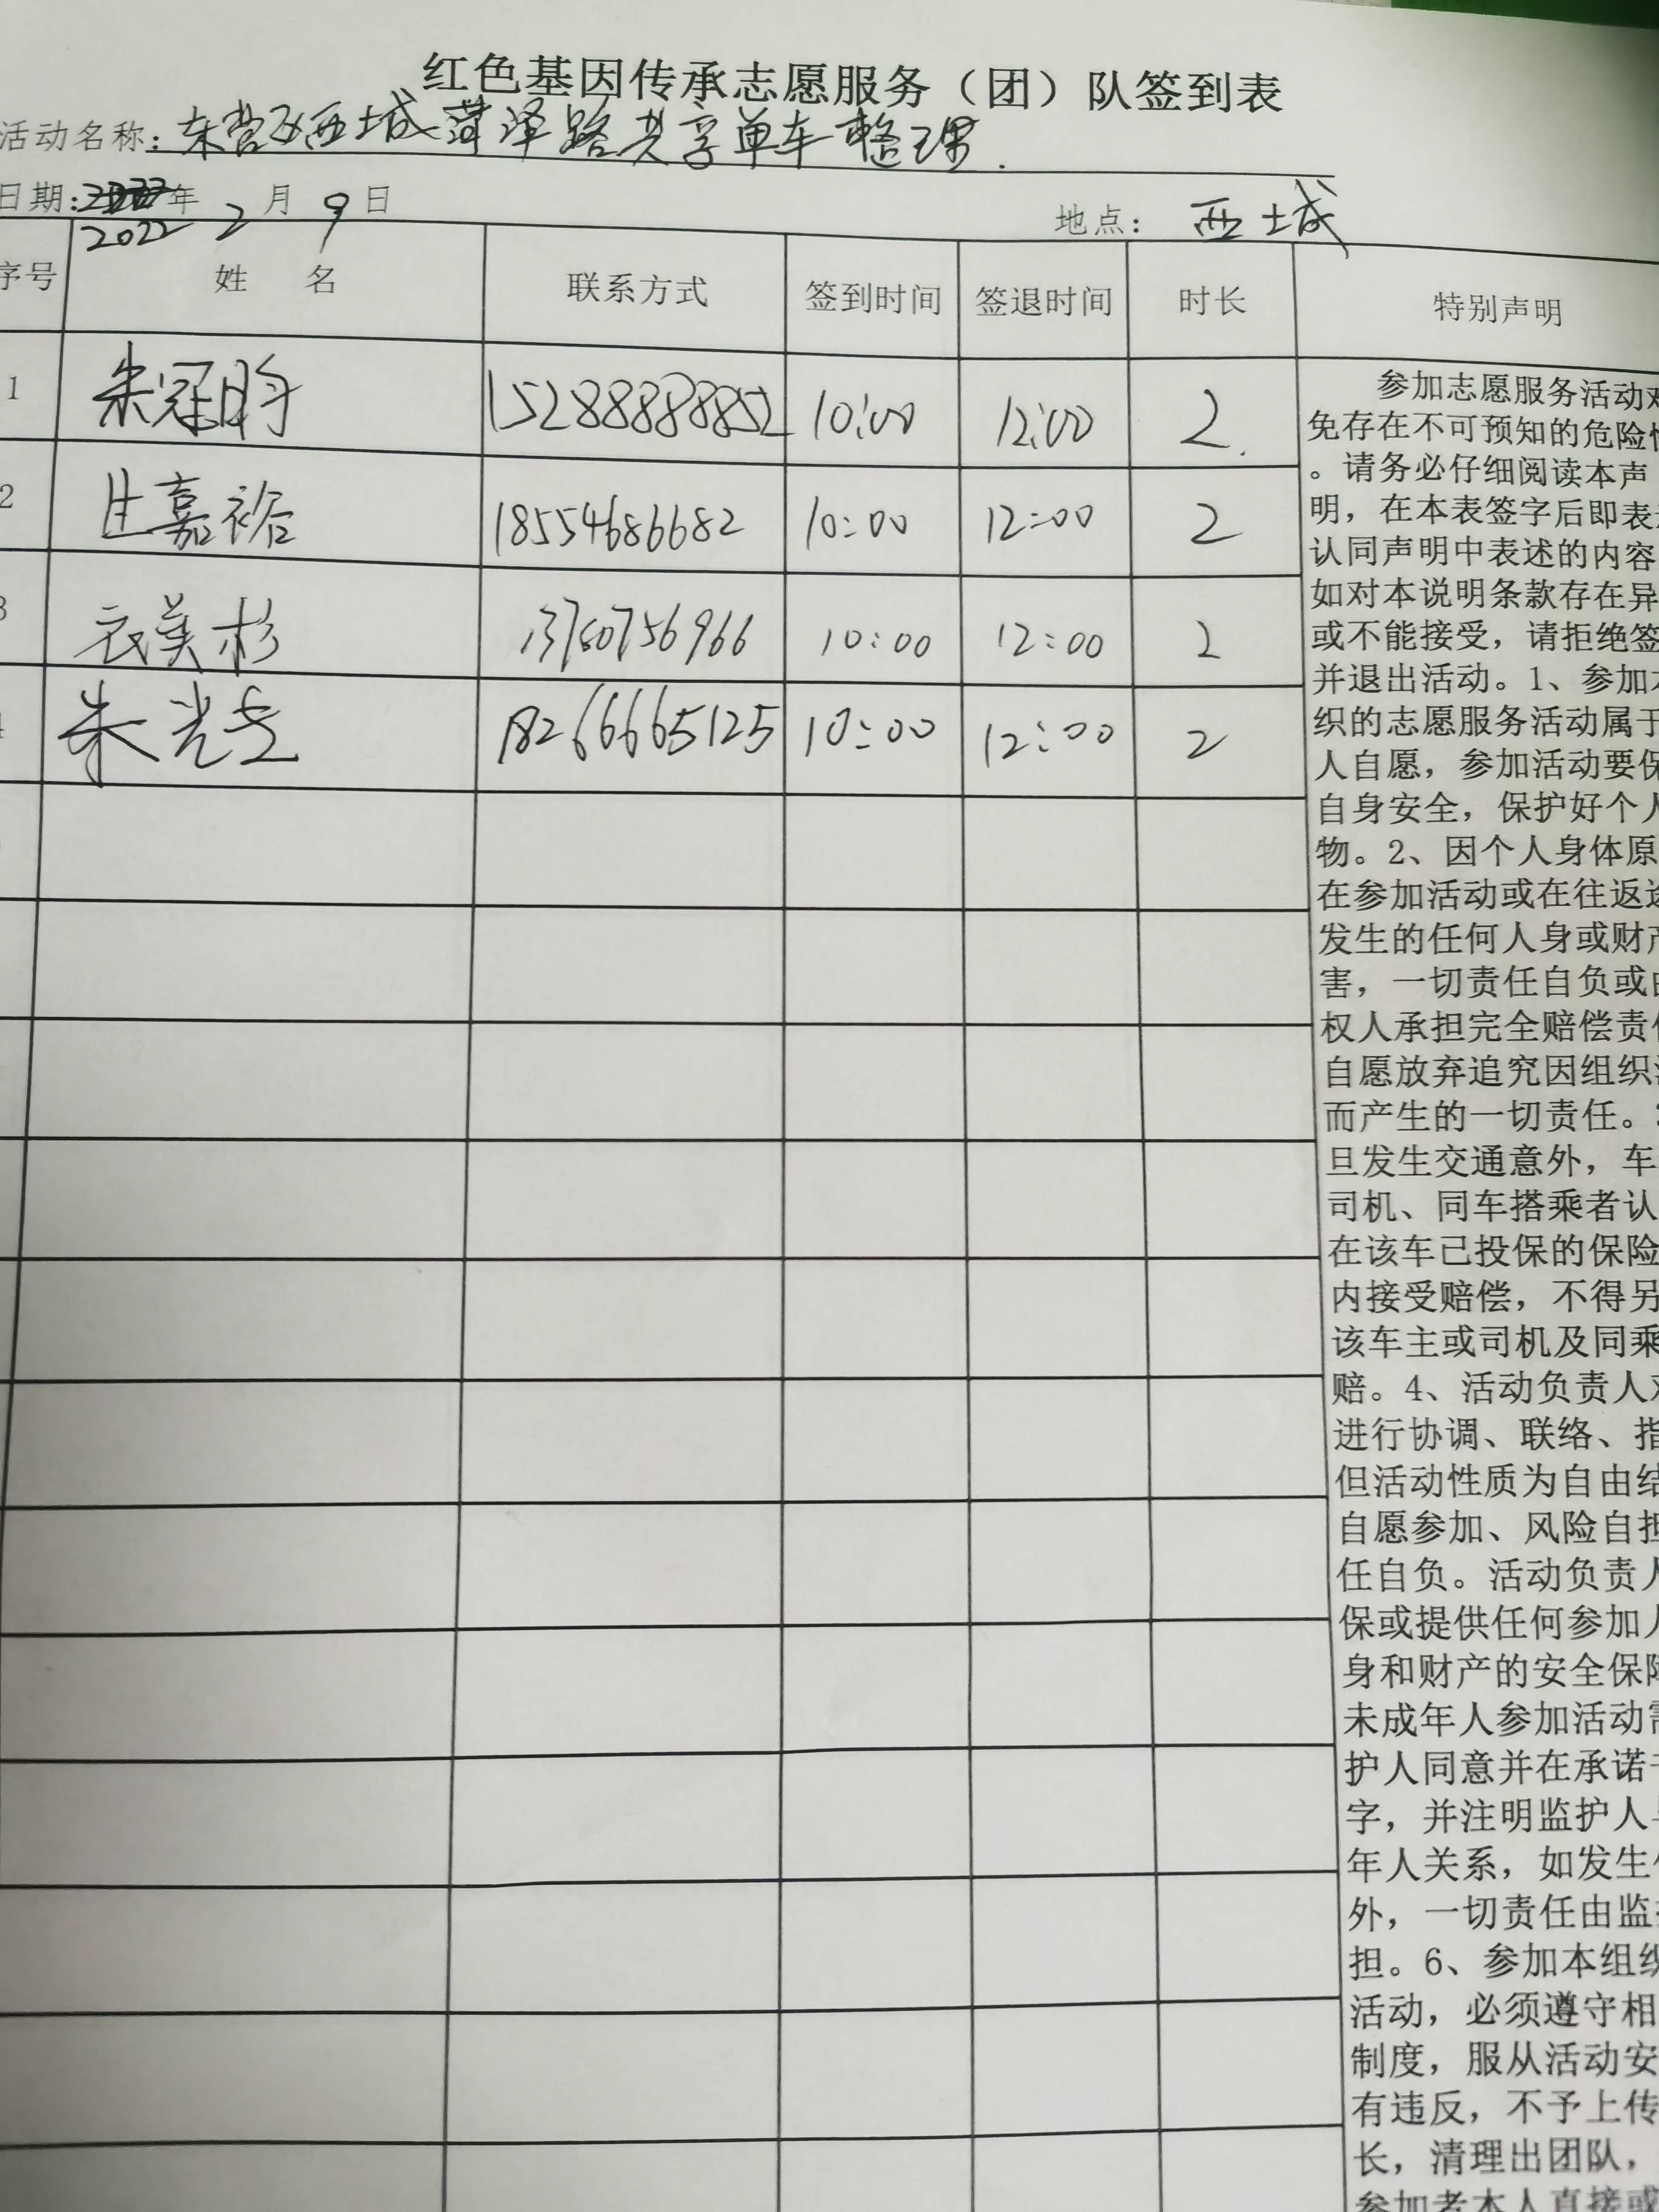 红色基因传承志愿服务（团）队签到表
活动名称：东营区西城菏泽路共享单车整理.
日期： 2022年2月9日 地点： 西城
序号 姓 名 联系方式 签到时间 签退时间 时长 特别声明
1 朱冠昀 15288888852 10:00 12:00 2.
2 嘉裕 18554686682 10:00 12:00 2
3 衣美杉 13780756966 10:00 12:00 2
朱光 18266665125 10:00 12:00 2
参加志愿服务活动难
免存在不可预知的危险
。请务必仔细阅读本声
明，在本表签字后即表
认同声明中表述的内容
如对本说明条款存在异
或不能接受，请拒绝签
并退出活动。1、参加本
织的志愿服务活动属于
人自愿，参加活动要保
自身安全，保护好个人
物。2、因个人身体原
在参加活动或在往返途
发生的任何人身或财产
害，一切责任自负或由
权人承担完全赔偿责任
自愿放弃追究因组织
而产生的一切责任。
旦发生交通意外，车
司机、同车搭乘者认
在该车已投保的保险
内接受赔偿，不得另
该车主或司机及同乘
赔。4、活动负责人对
进行协调、联络、指
但活动性质为自由结
自愿参加、风险自担
任自负。活动负责人
保或提供任何参加人
身和财产的安全保障
未成年人参加活动需
护人同意并在承诺书
字，并注明监护人与
年人关系，如发生
外，一切责任由监
担。6、参加本组织
活动，必须遵守相
制度，服从活动安
有违反，不予上传
长，清理出团队，
参加者本人直接或